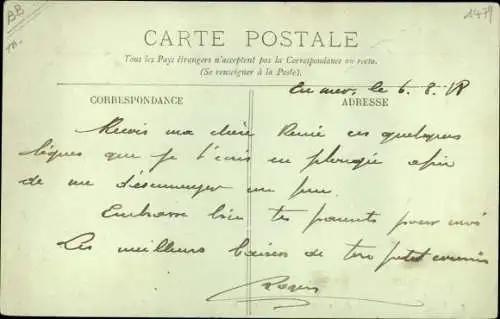 BB
1479
CARTE POSTALE
Tous les Pays étrangers n'acceptent pas la Correspondance au recto.
(Se renseigner à la Poste).
En mer, le 6. 8. 18
CORRESPONDANCE
ADRESSE
Recois ma chère Renée ces quelques
lignes que je t'écris en plongée afin
de me désennuyer un peu.
Embrasse bien tes parents pour moi
Les meilleurs baisers de ton petit